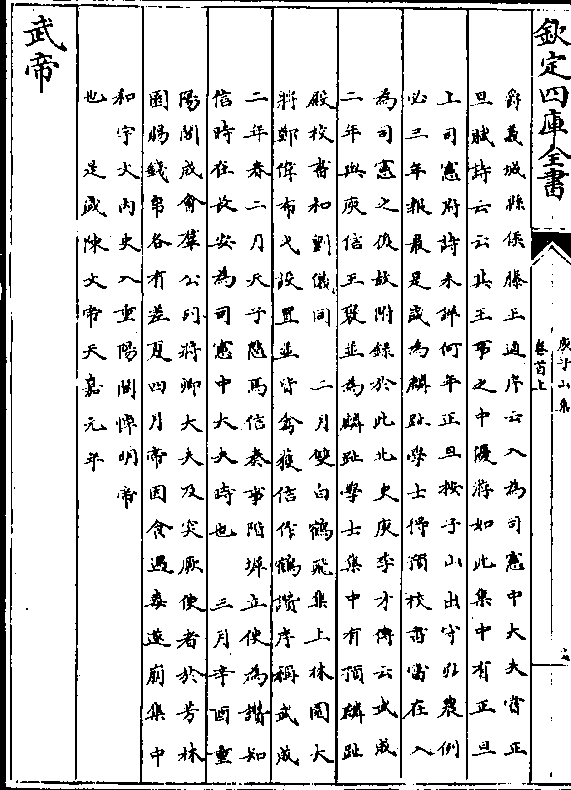 欽定四庫全書
庾子山集
卷首上
爵義城縣侯滕王逌序云入為司憲中大夫當正
旦賦詩云云其王事之中優游如此集中有正旦
上司憲府詩未詳何年正旦按子山出守弘農例
必三年報最是歲為麟趾學士得預校書當在入
為司憲之後故附錄於此北史庾季才傳云武成
二年與庾信王襃並為麟趾學士集中有預麟趾
殿校書和劉儀同　二月雙白鶴飛集上林園大
將鄭偉布弋設罝並皆禽獲信作鶴讚序稱武成
二年春二月天子隨馬信奏事階墀立使為讚知
信時在故安為司憲中大夫時也　三月辛酉重
陽閣成會羣公列將卿大夫及突厥使者於芳林
園賜錢帛各有差夏四月帝因食遇毒遂崩集中
和宇文內史入重陽閣悼明帝
也　是歲陳文帝天嘉元年
武帝